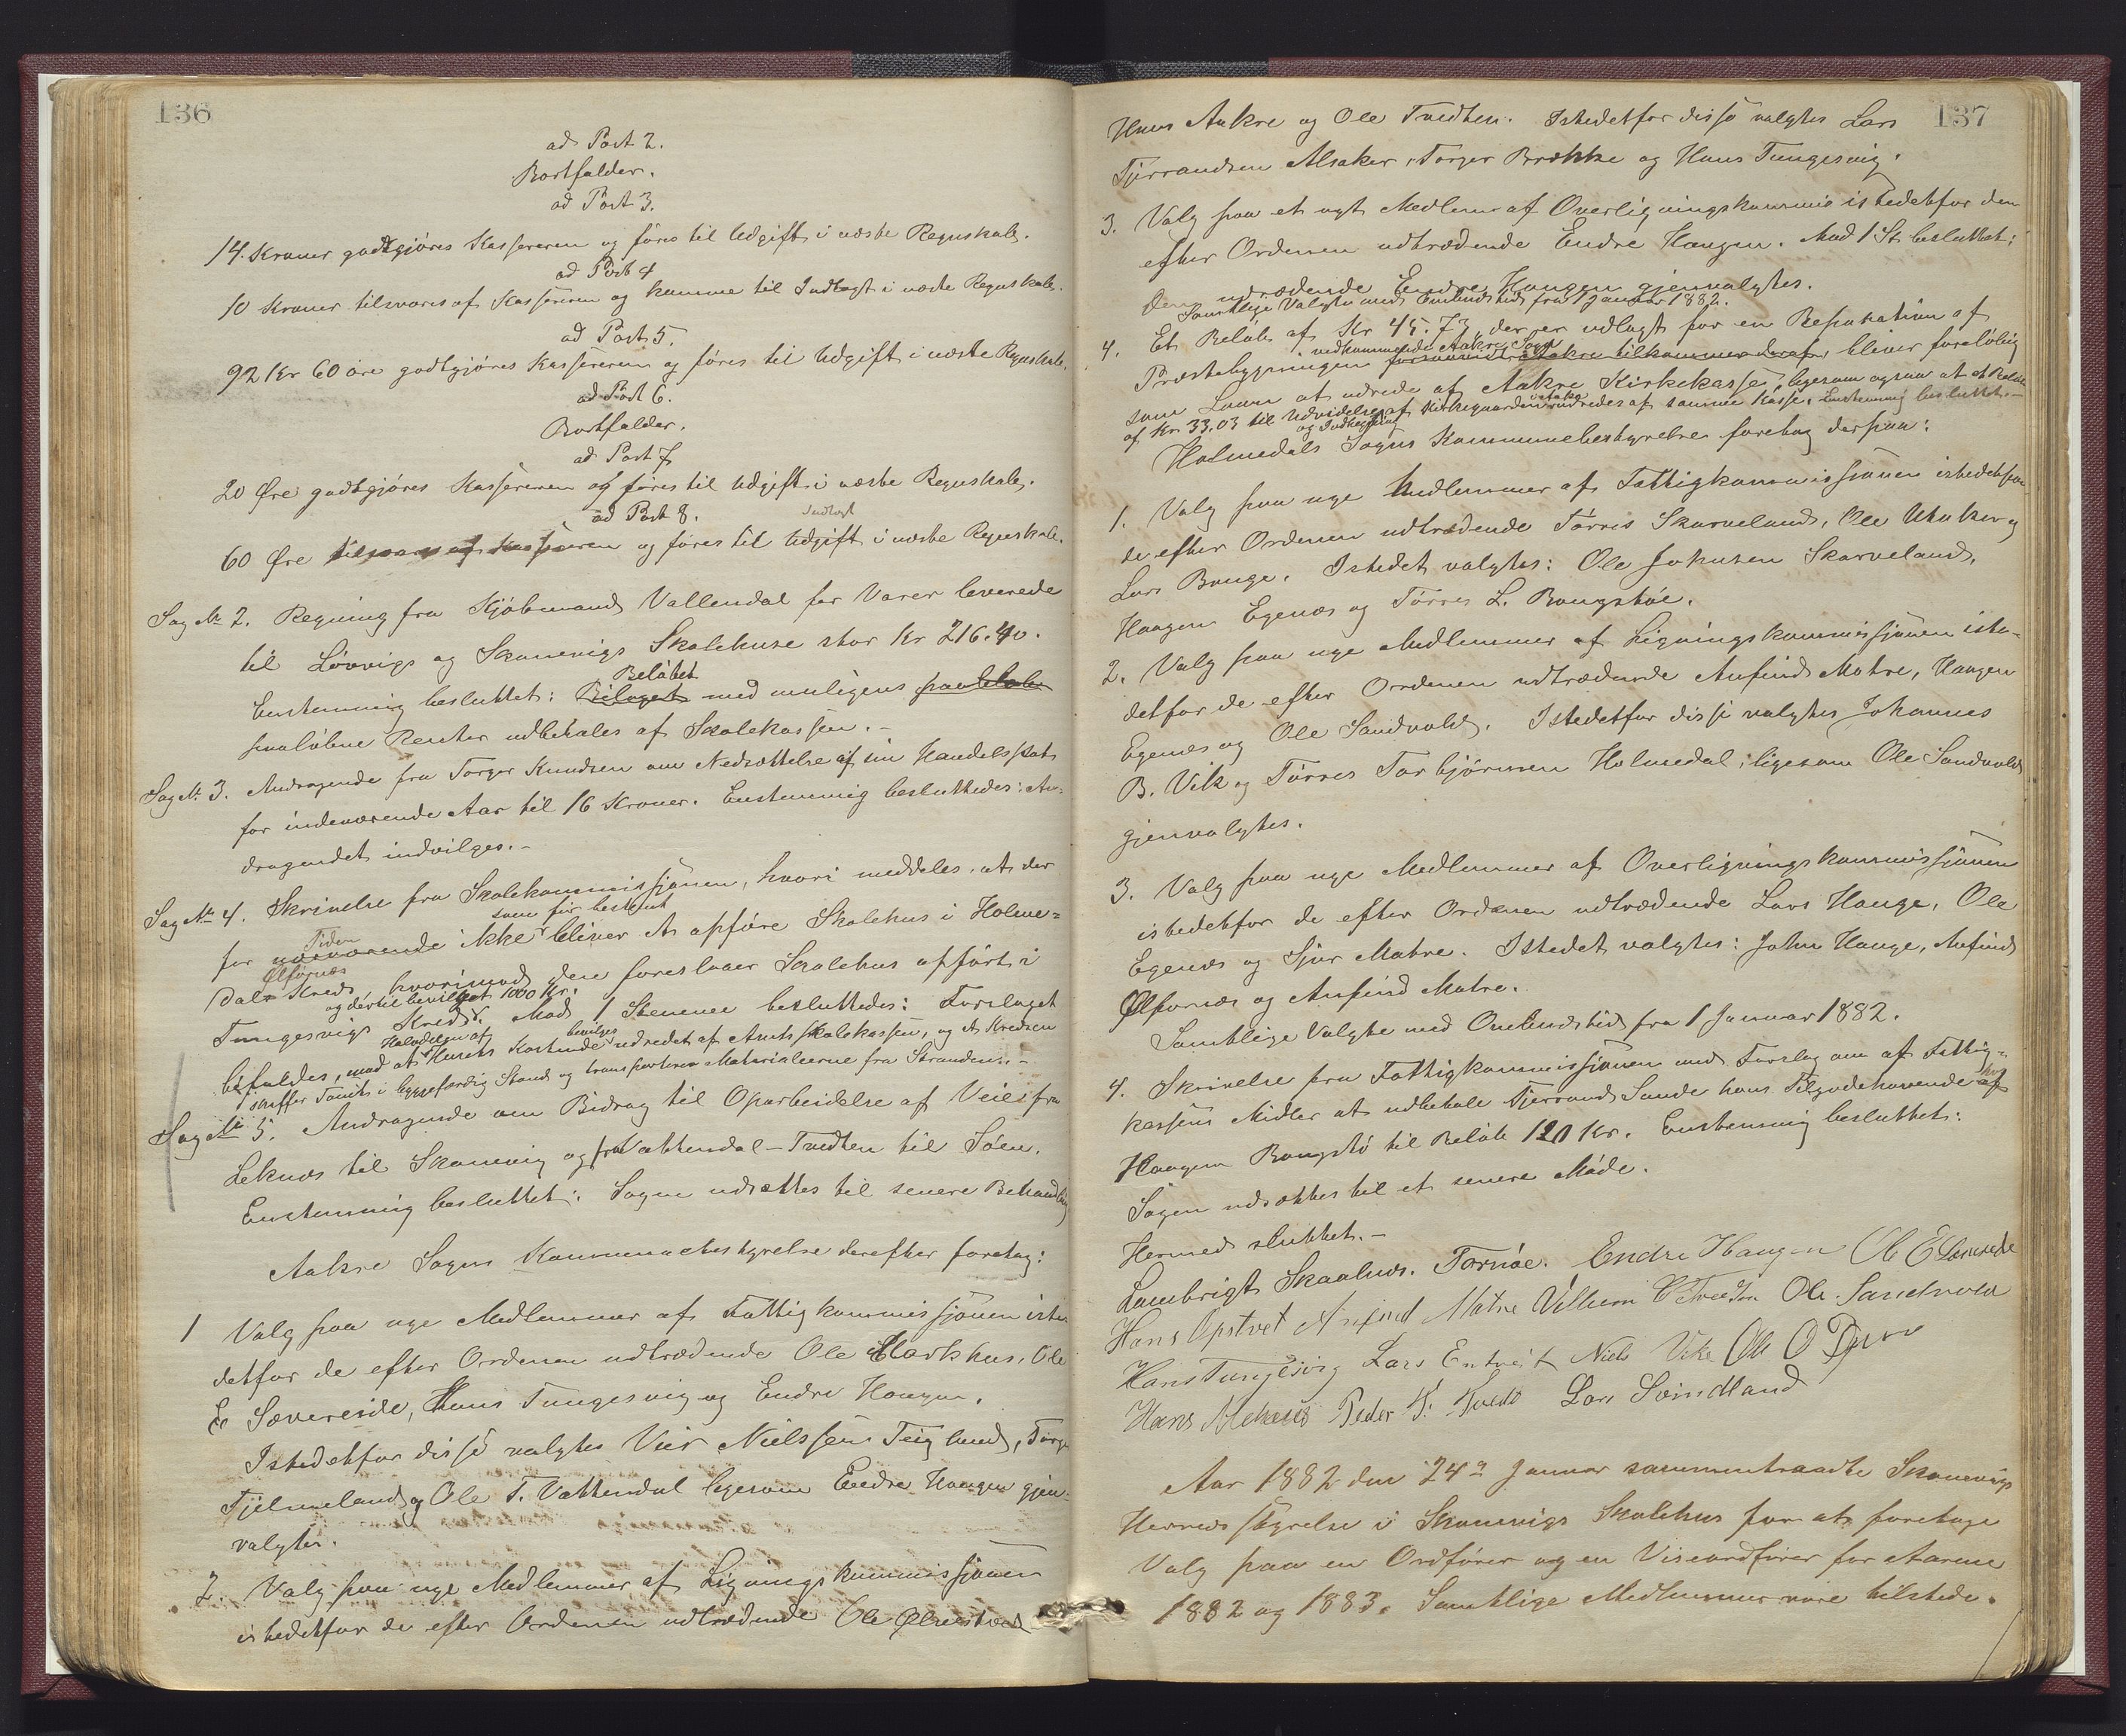 136
ad Post 2.
Bortfalder.
ad Post 3.
14 Kroner godtgjöres Kassereren og föres til Udgift i næste Regnskab.
ad Post 4
10 Kroner tilsvares af Kassereren og komme til Indtægt i næste Regnskab.
ad Post 5.
92 Kr 60 öre godtgjöres Kassereren og föres til Udgift i næste Regnskab.
ad Post 6.
Bortfalder.
ad Post 7
20 Øre godtgjöres Kassereren og föres til Udgift i næste Regnskab.
ad Post 8.
Indtægt
60 Øre tilsvares af Kassereren og föres til Udgift i næste Regnskab.
Sag No 2. Regning fra Kjöbmand Vallendal for Varer leverede
til Lövvigs og Skonevigs Skolehuse stor Kr 216.40.
Beløbet
Enstemmig besluttet: Bilaget med muligens paaløb
paalöbne Renter udbetales af Skolekassen.-
Sag No 3. Andragende fra Torger Knudsen om Nedsættelse af sin Handelsskat
for indeværende Aar til 16 Kroner. Enstemmig besluttedes: An-
dragendet indvilges.-
Sag No 4. Skrivelse fra Skolekommissjonen, hvori meddeles, at der
som för bestemt
for Tiden nuværende ikke bliver at opföre Skolehus i Holme=
Ølfernæs
dals Kreds, hvorimod den foreslaaer Skolehus opfört i
og dertil bevilget 1000 Kr.
Tungesvigs Kreds. Mod 1 Stemme besluttedes: Forslaget
Halvdelen af bevilges
bifaldes, mod at Husets Kostende udredet af Amtsskolekassen, og at Kredsen
skaffer Tomt i byggefærdig Stand og transporterer Materialierne fra Stranden.-
Sag No 5. Andragende om Bidrag til Oparbeidelse af Vei fra
Leknes til Skonevig og fra Vattendal-Tvedten til Söen.
Enstemmig besluttet: Sagen udsættes til senere Behandling
Aakre Sogns Kommunebestyrelse derefter foretog:
1 Valg paa nye Medlemmer af Fattigkommissjonen iste-
detfor de efter Ordenen udtrædende Ole Markhus, Ole
E Sævereide, Hans Tungesvig og Endre Haugen.
Istedetfor disse valgtes Vier Nielssen Teigland, Torger
Fjelmeland og Ole T. Vattendal ligesom Endre Haugen gjen-
valgtes.
2. Valg paa nye Medlemmer af Ligningskommissjonen
istedetfor de efter Ordenen udtrædende Ole
137
Hans Aakre og Ole Tvedten. Istedetfor disse valgtes Lars
Tjerandsen Alsaker, Torger Brække og Hans Tungesvig.
3. Valg paa et nyt Medlem af Overligningskommis istedetfor den
efter Ordenen udtrædende Endre Haugen. Mod 1 St. besluttet:
den udtrædende Endre Haugen gjenvalgtes.
Samtlige Valgte med Ombudstid fra 1 Januar 1882.
4. Et Belöb af Kr 45.73, der er udlagt for en Reparation af
vedkommende Aakre Sogn
Præstebygningen Aakre tilkommer derefter bliver foreløbig
som Laan at udrede af Aakre Kirkekasse, ligesom ogsaa at et Beløb
af Kr 33.03 til Udvidelse af Kirkegaarden udredes af samme Kasse. Enstemmig besluttet.-
og Indhegning
Holmedals Sogns Kommunebestyrelse foretog derpaa:
1. Valg paa nye Medlemmer af Fattigkommissjonen istedetfor
de efter Ordenen udtrædende Törres Skarveland, Ole Utaker og
Lars Bauge. Istedet valgtes: Ole Johnsen Skarveland,
Haagen Egenæs og Törres L. Bougstöe.
2. Valg paa nye Medlemmer af Ligningskommissjonen iste-
detfor de efter Ordenen udtrædende Anfind Matre, Haagen
Egenæs og Ole Sandvold. Istedetfor disse valgtes Johannes
B. Vik og Törres Torbjörnsen Holmedal, ligesom Ole Sandvold
gjenvalgtes.
3. Valg paa nye Medlemmer af Overligningskommissjonen
istedetfor de efter Ordenen udtrædende Lars Hauge, Ole
Egenæs og Sjur Matre. Istedet valgtes: John Hauge, Anfind
Ølfernæs og Anfind Matre.
Samtlige Valgte med Ombudstid fra 1 Januar 1882.
4. Skrivelse fra Fattigkommissjonen med Forslag om af Fattig-
kassens Midler at udbetale Tjerand Sunde hans Tilgodehavende af
hos
Haagen Bougstö til Belöb 120 Kr. Enstemmig besluttet:
Sagen udsættes til et senere Möde.
Hermed sluttet.-
Lambrigt Skaalnes. Tornöe. Endre Haugen Ol E Sævreide
Hans Opstvet Anfind Matre Villum Tvedten Ole Sandvold
Hans Tungesvig Lars Entveit Niels Vike Ole O
Hans Peder K. Kvedt Lars Svindland
Aar 1882 den 24de Januar sammentraadte Skonevigs
Herredsstyrelse i Skonevigs Skolehus for at foretage
Valg paa en Ordförer og en Viseordförer for Aarene
1882 og 1883. Samtlige Medlemmer vare tilstede.